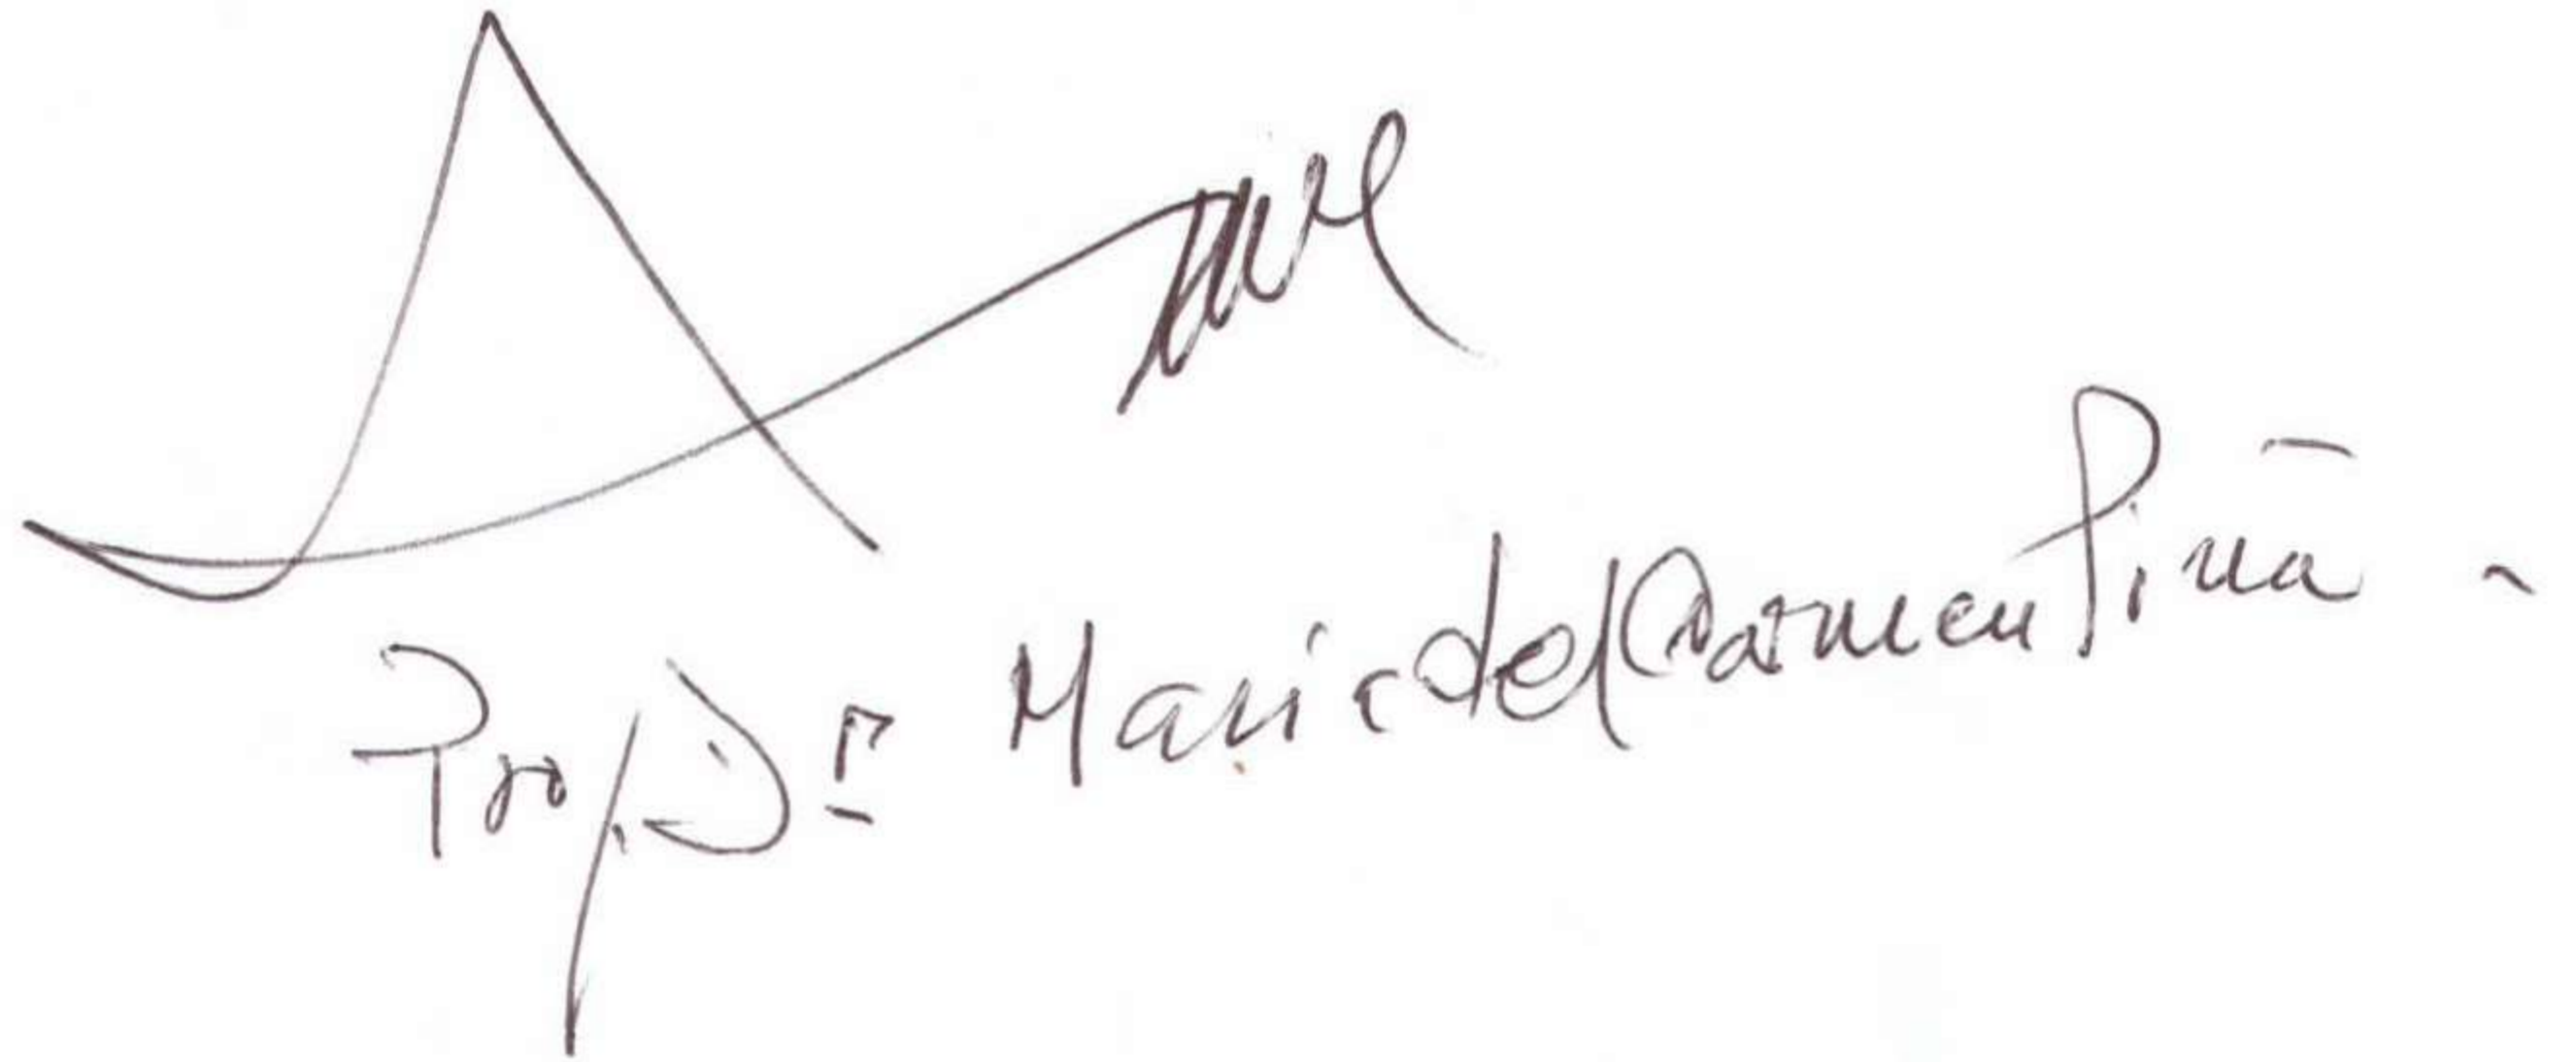 Prof. Dr María del Carmen Piña.